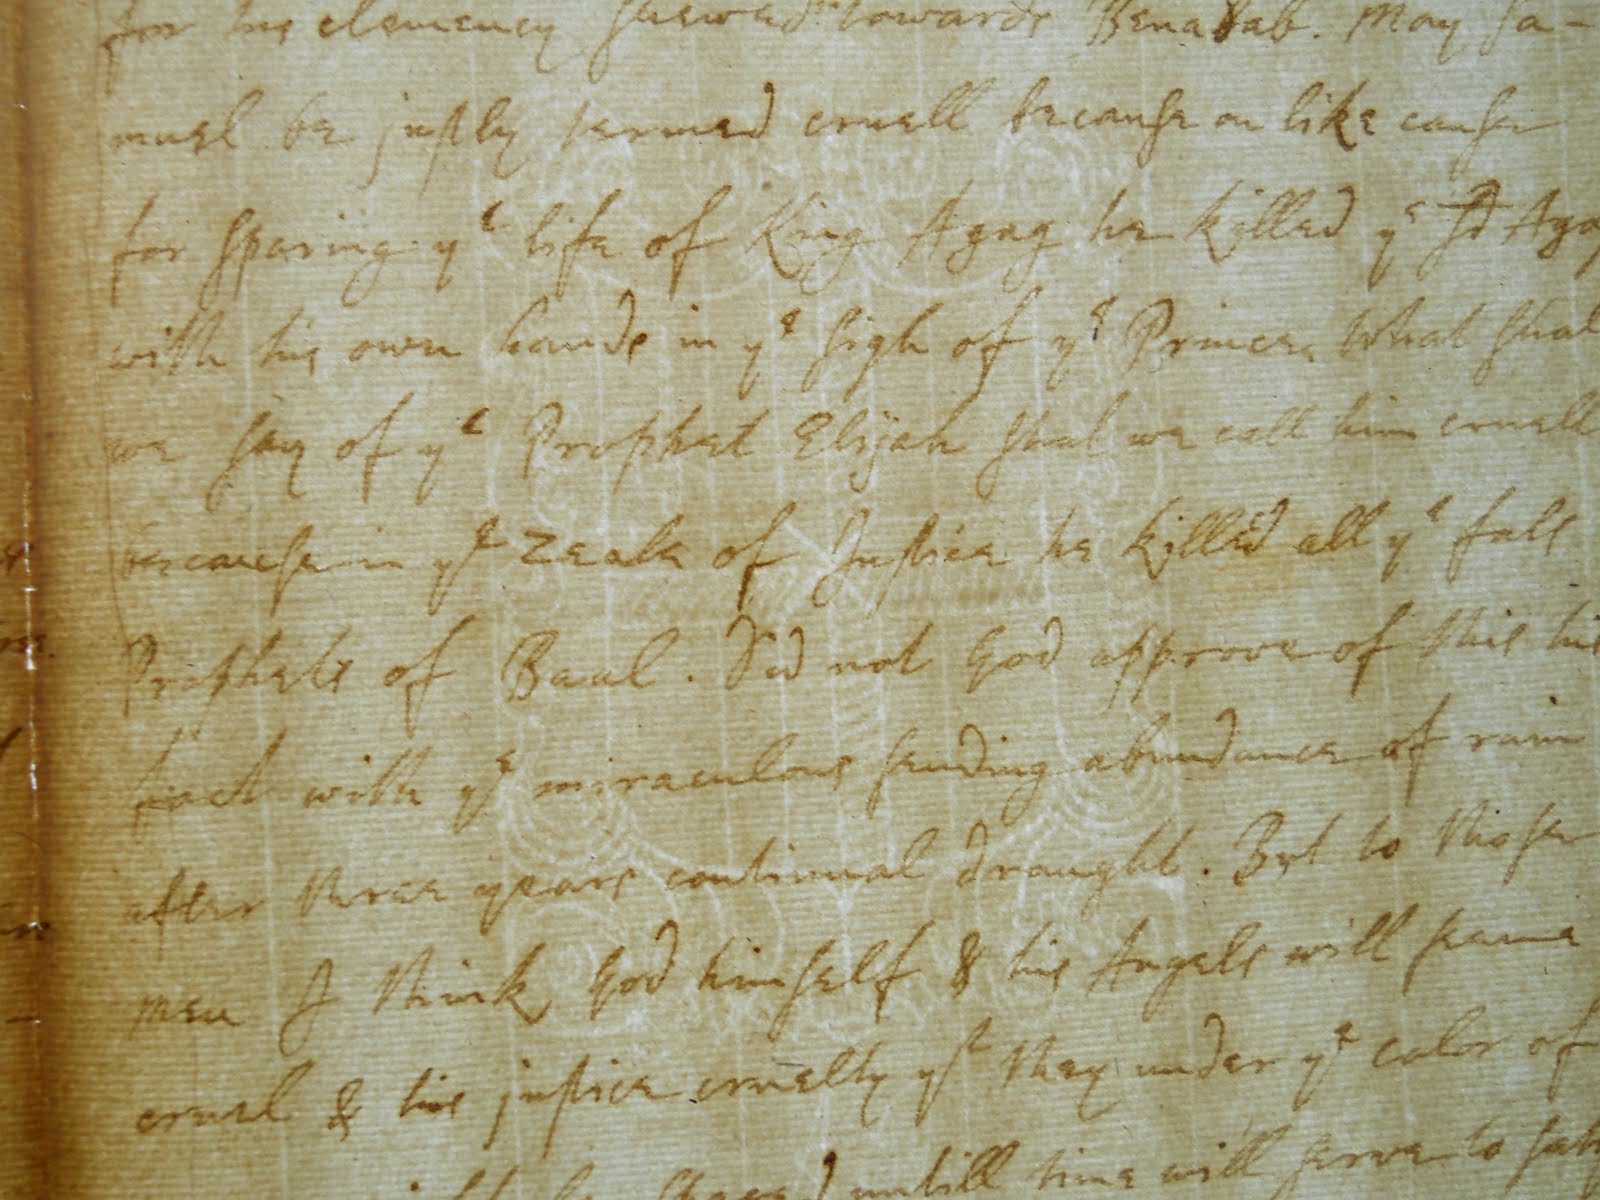 for his clemency shewed towards Benadab. May Sa-
muel be justly termed cruell because on like cause
for sparing yᵉ life of King Agag he killed yᵉ sd Agag
with his own hands in yᵉ sigh of yᵉ Prince. What shal
we say of yᵉ Prophet Elijah shal we call him cruell
because in yᵉ zeale of Justice he killed all yᵉ fals
Prophets of Baal. Did not God approve of this his
fact with yᵉ miraculous sending abundance of rain
after three years continual draught. But to those
men I think God himself & his Angels will seame
cruel & his justice cruelty yᵗ they under yᵉ color of
be shaved untill time will serve to